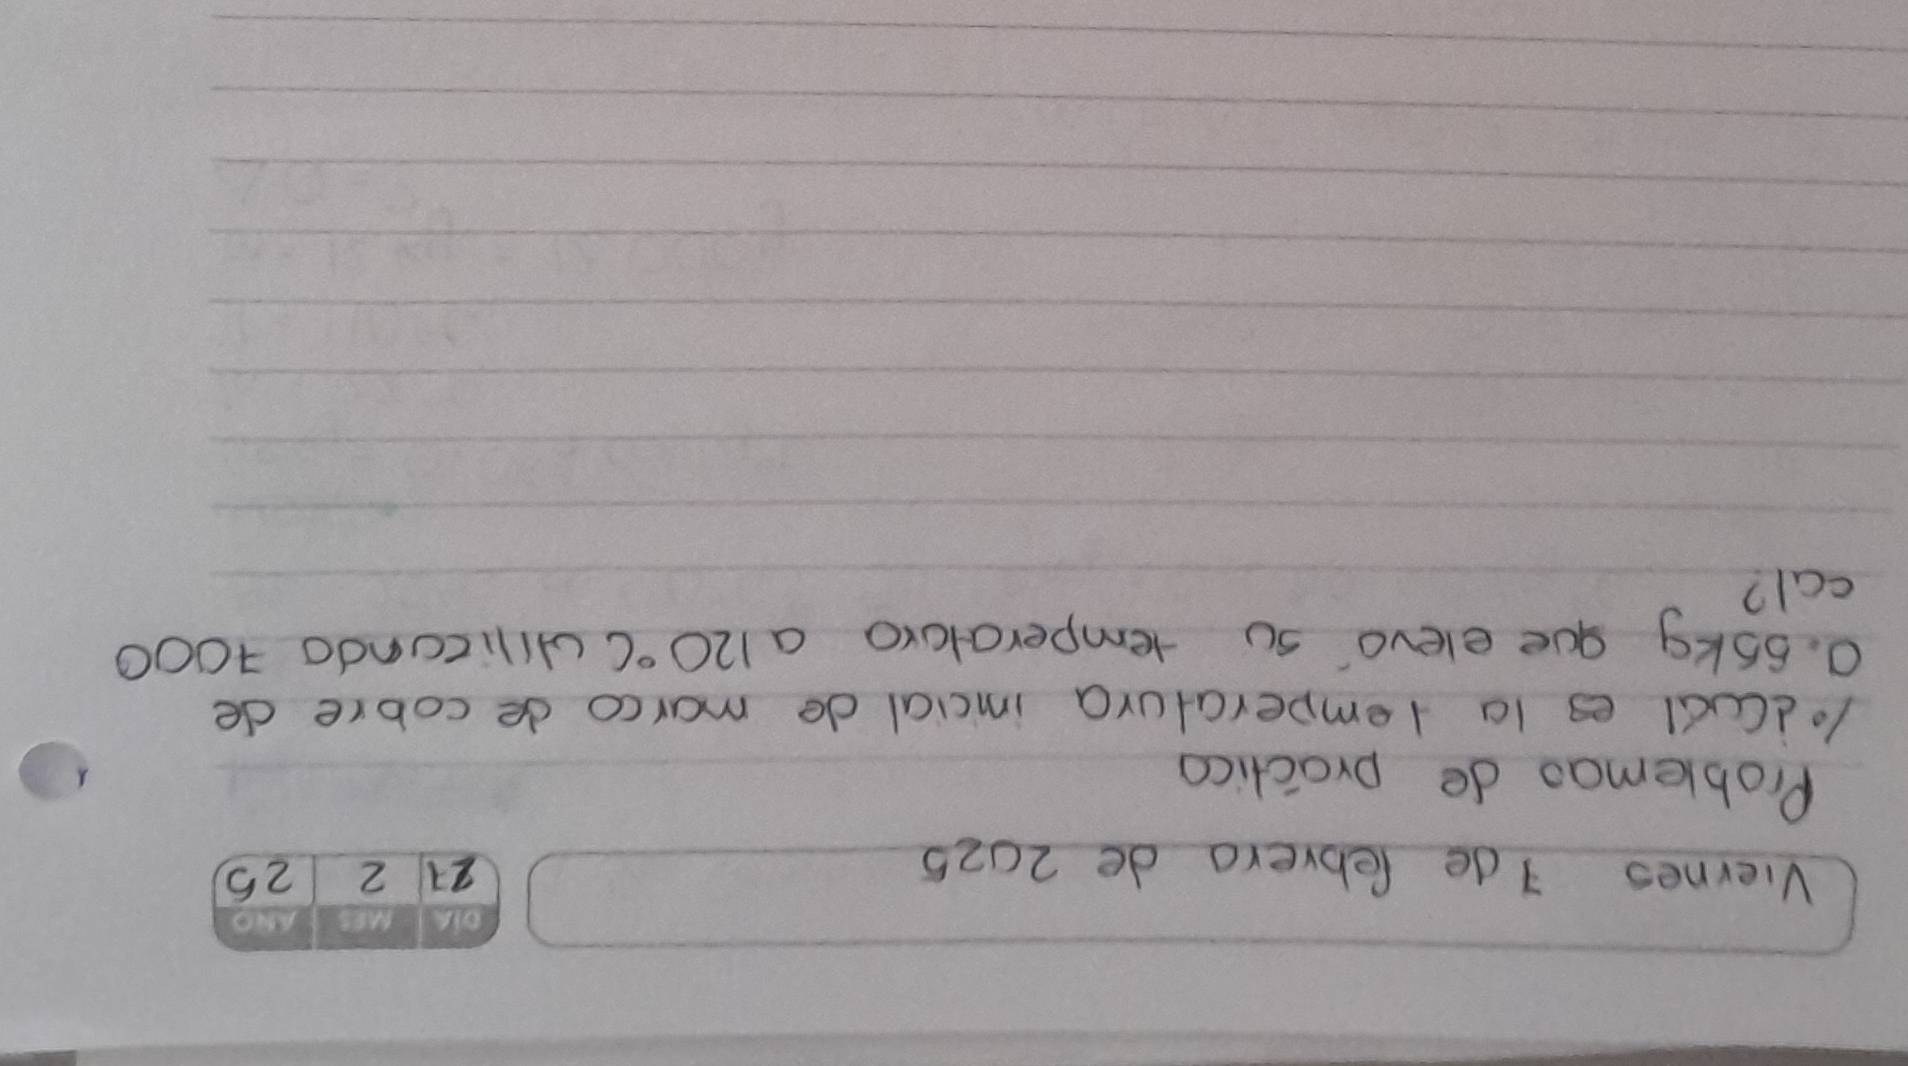 DÍA MES AÑO
21 2 25
Viernes 7 de febrero de 2025
Problemas de práctica
1. ¿Cuál es la temperatura inicial de marco de cobre de
0.65kg que elevó su temperatura a 120°C utilizando 7000
cal?